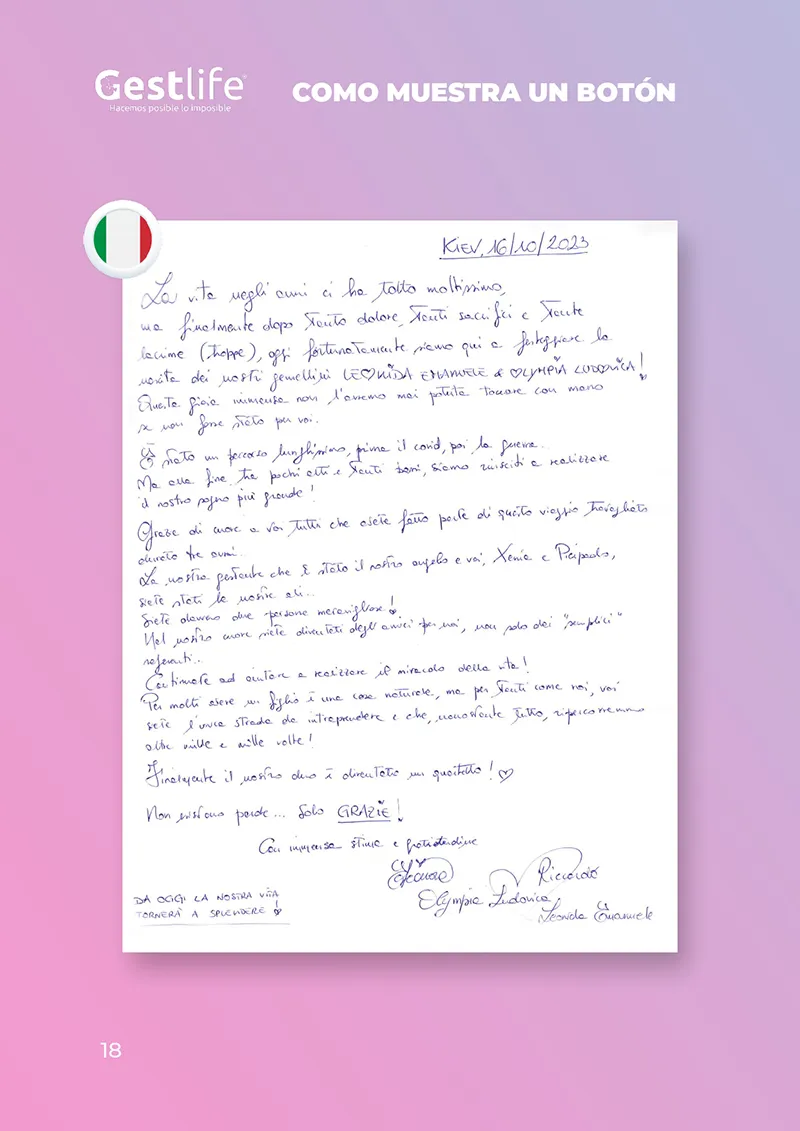 Gestlife
Hacemos posible lo imposible
COMO MUESTRA UN BOTÓN
KIEV, 16/10/2023
La vita negli anni ci ha tolto moltissimo,
ma finalmente dopo tanto dolore, tanti sacrifici e tante
lacrime (troppe), oggi fortunatamente siamo qui a festeggiare la
nascita dei nostri gemellini LEONIDA EMANUELE & OLYMPIA LUDOVICA!
Questa gioia immensa non l'avremo mai potuta toccare con mano
se non fosse stato per voi.
È stato un percorso lunghissimo, prima il covid, poi la guerra..
Ma alla fine, tra pochi alti e tanti bassi, siamo riusciti a realizzare
il nostro sogno più grande!
Grazie di cuore a voi tutti che avete fatto parte di questo viaggio travagliato
durato tre anni..
La nostra gestante che è stata il nostro angelo e voi, Xenia e Pierpaolo,
siete stati le nostre ali..
Siete davvero due persone meravigliose!
Nel nostro cuore siete diventati degli amici per noi, non solo dei "semplici"
referenti..
Continuate ad aiutare a realizzare il miracolo della vita!
Per molti avere un figlio è una cosa naturale, ma per tanti come noi, voi
siete l'unica strada da intraprendere e che, nonostante tutto, ripercorreremmo
altre mille e mille volte!
Finalmente il nostro duo è diventato un quartetto! ♡
Non esistono parole... Solo GRAZIE!
Con immensa stima e gratitudine
Eleonora Riccardo
Olympia Ludovica
Leonida Emanuele
DA OGGI LA NOSTRA VITA
TORNERÀ A SPLENDERE!
18